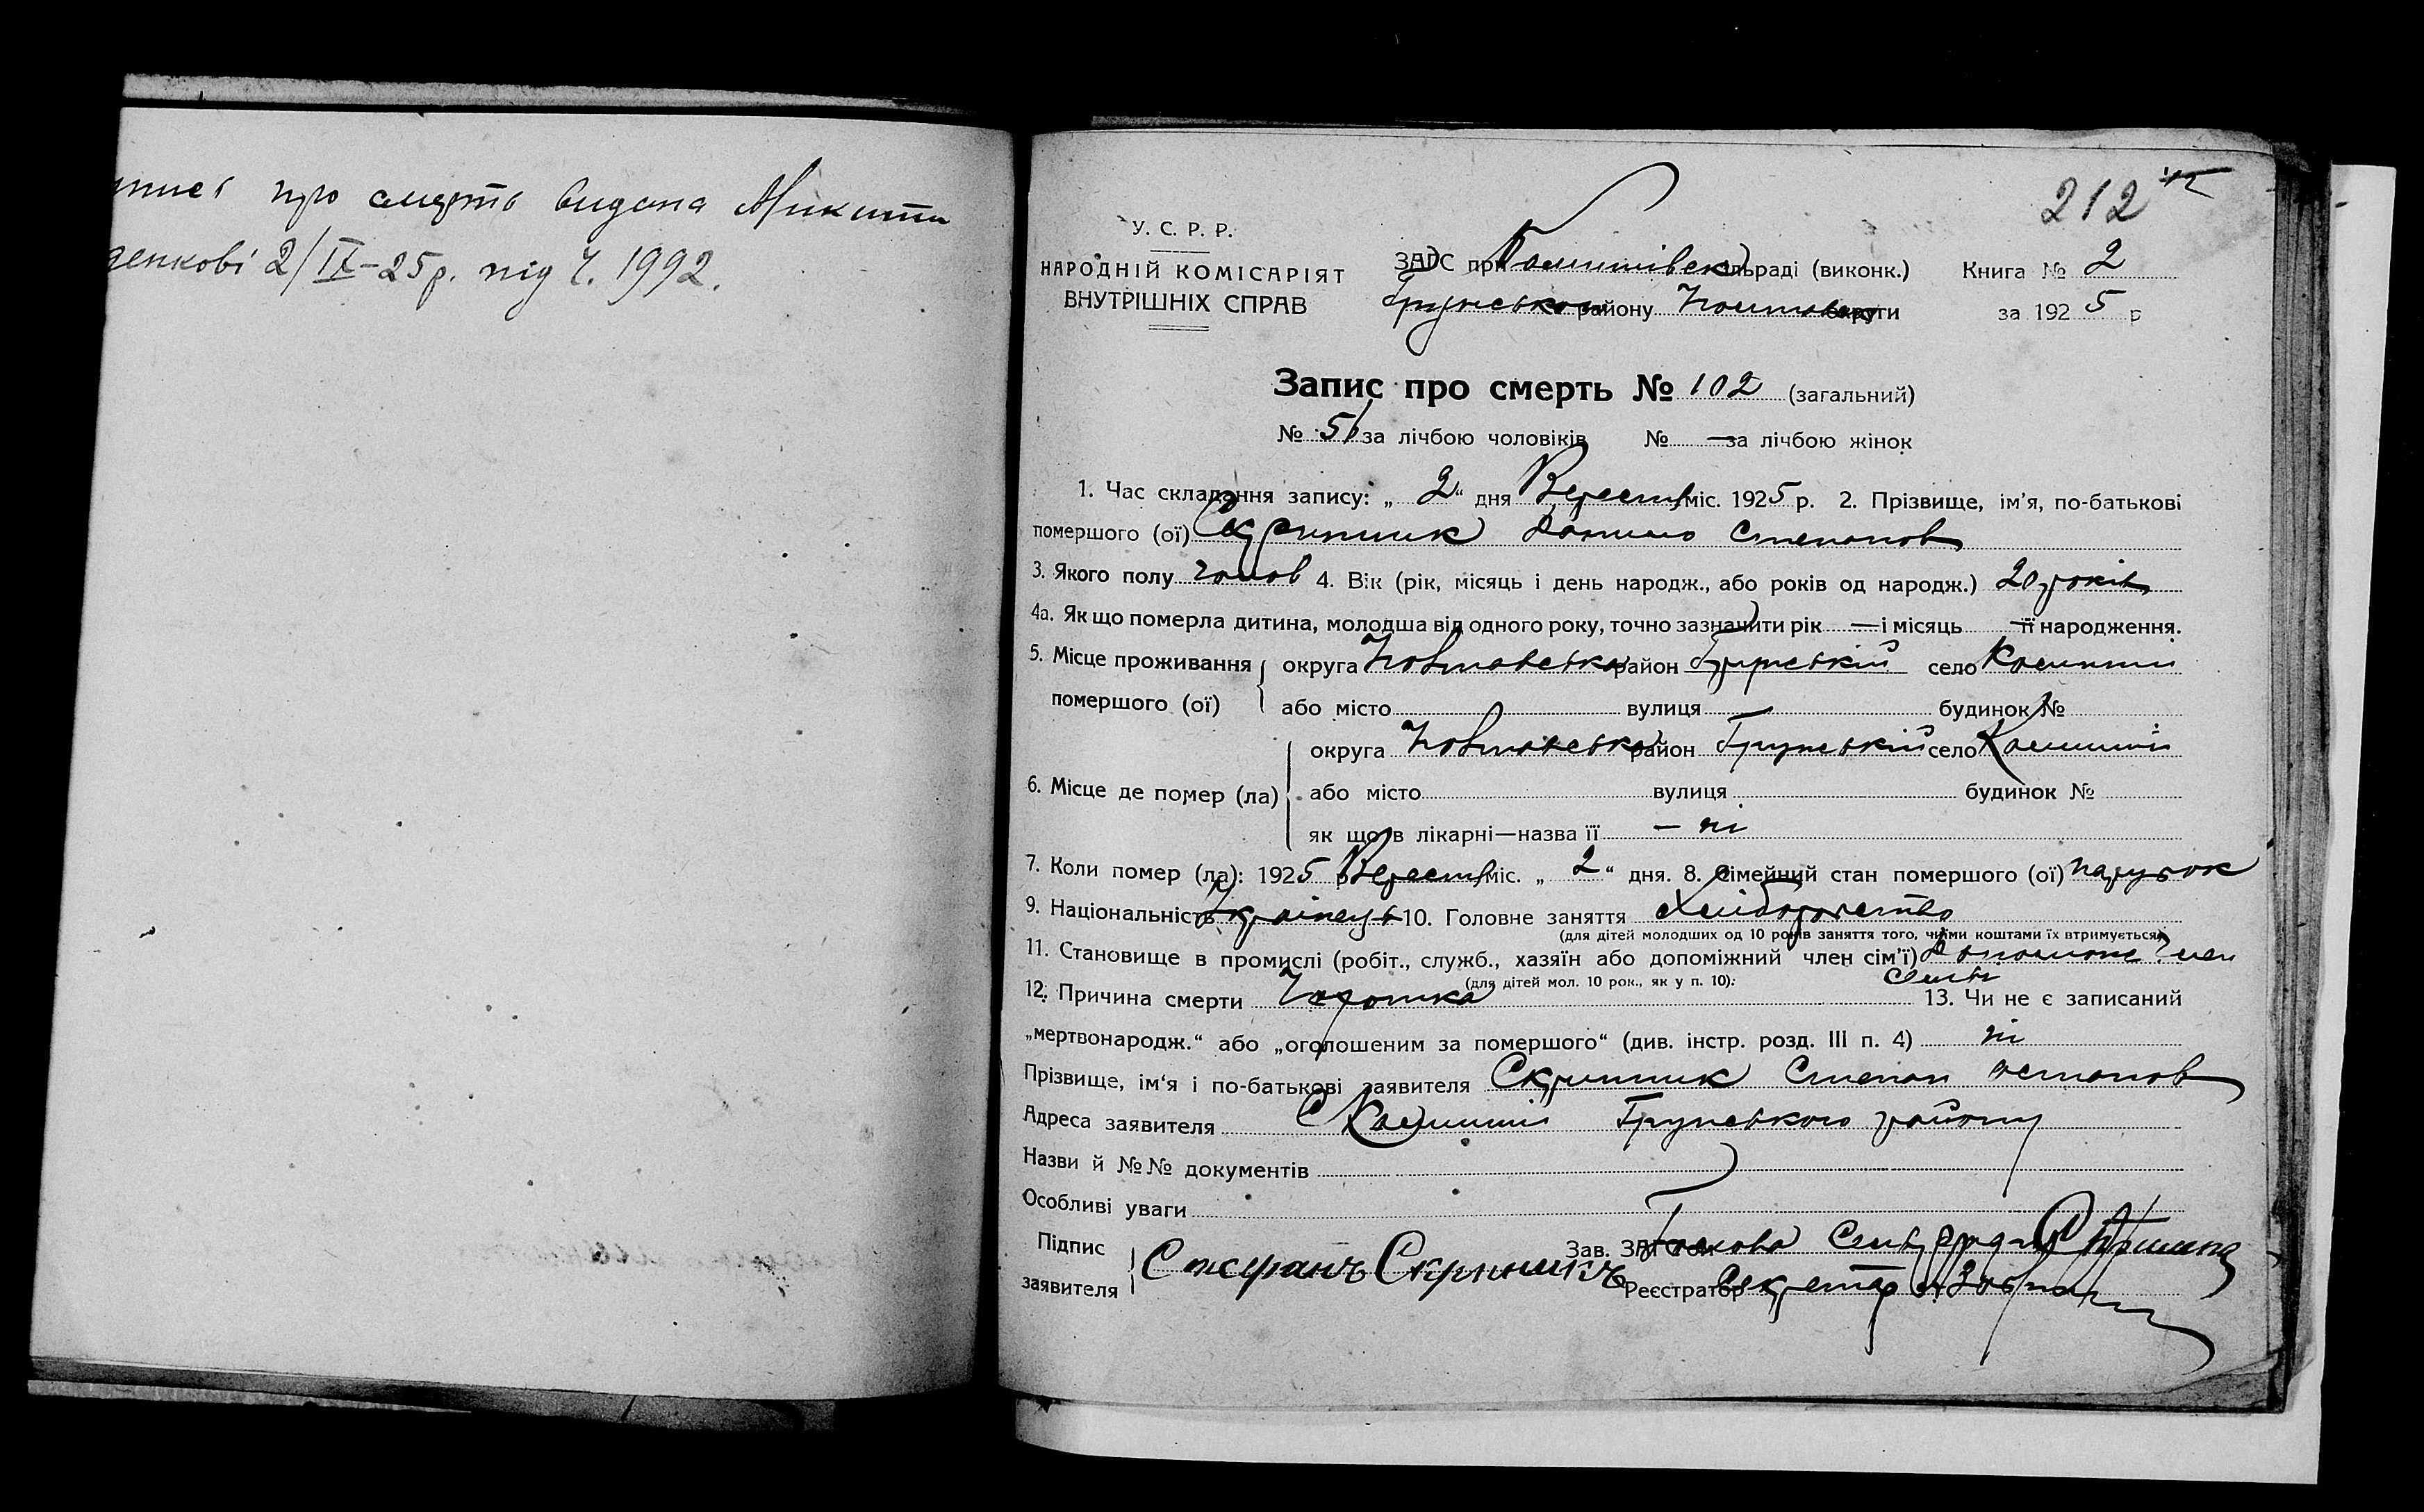 про смерть видана Микити
денкові 2/IX–25р. під Ч. 1992.
212
У. С. Р. Р.
НАРОДНІЙ КОМІСАРІЯТ
ВНУТРІШНІХ СПРАВ
ЗАГС при сільраді (виконк.) Книга № 2
Грунського району Полтавськ округи за 1925 р
Запис про смерть № 102 (загальний)
№ 56 за лічбою чоловіків № — за лічбою жінок
1. Час складання запису: „ 2 “ дня Вересня міс. 1925 р. 2. Прізвище, ім'я, по-батькові
помершого (ої) Скрипник Данило Степанов
3. Якого полу чолов 4. Вік (рік, місяць і день народж., або років од народж.) 20 років
4а. Як що померла дитина, молодша від одного року, точно зазначити рік — і місяць — її народження.
5. Місце проживання помершого (ої) округа Полтавська район Грунський село
або місто вулиця будинок №
6. Місце де помер (ла) округа Полтавська район Грунський село
або місто вулиця будинок №
як що в лікарні—назва її — ні
7. Коли помер (ла): 1925 р Вересня міс. „ 2 “ дня. 8. Сімейний стан помершого (ої) парубок
9. Національність Українець 10. Головне заняття хліборобство
(для дітей молодших од 10 років заняття того, чиїми коштами їх втримується)
11. Становище в промислі (робіт., служб., хазяїн або допоміжний член сім'ї) Допомож член
(для дітей мол. 10 рок., як у п. 10): семьи
12. Причина смерти 13. Чи не є записаний
„мертвонародж.“ або „оголошеним за помершого“ (див. інстр. розд. III п. 4) ні
Прізвище, ім'я і по-батькові заявителя Скрипник Степан
Адреса заявителя С Грунського району
Назви й №№ документів
Особливі уваги
Підпис заявителя Стефанъ Скрыпникъ Зав. ЗАГС'ом Голова Сельради
Реєстратор Секретар